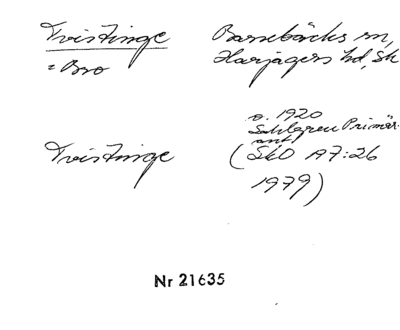 Tvistinge Barsebäcks sn,
= Bro Harjagers hd, Sk
o. 1920
Sahlgren Primär-
ant
Tvistinge (SkO A7:26
1979)
Nr 21635